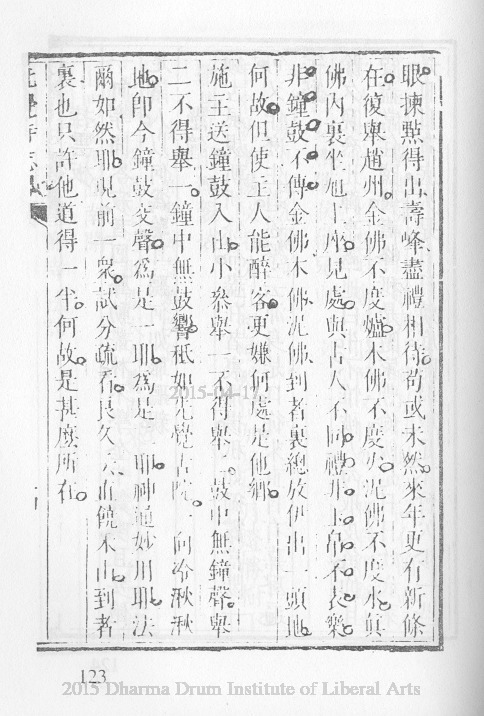 眼揀點得出壽峰盡禮相待苟或未然來年更有新條
在復舉趙州金佛不度爐木佛不度火泥佛不度水真
佛內裏坐旭上座見處與古人不同禮非玉帛不表樂
非鐘鼓不傳金佛木佛泥佛到者裏總放伊出一頭地
何故但使主人能醉客更嫌何處是他鄉
施主送鐘鼓入山小參舉一不得舉二鼓中無鐘聲舉
二不得舉一鐘中無鼓響秖如先覺古院一向冷湫湫
地即今鐘鼓交聲為是一耶為是二耶神通妙用耶法
爾如然耶現前一衆試分疏看良久云直饒未出到者
裏也只許他道得一半何故是甚麼所在
123
2015-04-17
2015 Dharma Drum Institute of Liberal Arts